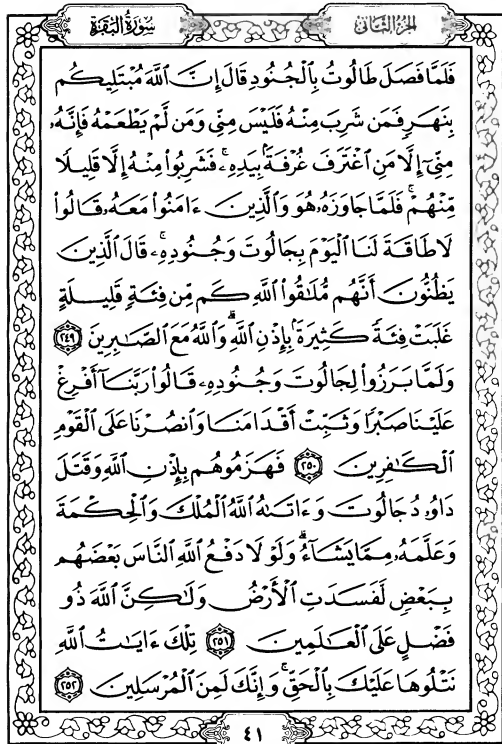 سُورَةُ البَقَرَةِ
الجزء الثاني
فَلَمَّا فَصَلَ طَالُوتُ بِٱلْجُنُودِ قَالَ إِنَّ ٱللَّهَ مُبْتَلِيكُم
بِنَهَرٍ فَمَن شَرِبَ مِنْهُ فَلَيْسَ مِنِّى وَمَن لَّمْ يَطْعَمْهُ فَإِنَّهُۥ
مِنِّىٓ إِلَّا مَنِ ٱغْتَرَفَ غُرْفَةًۢ بِيَدِهِۦ ۚ فَشَرِبُوا۟ مِنْهُ إِلَّا قَلِيلًا
مِّنْهُمْ ۚ فَلَمَّا جَاوَزَهُۥ هُوَ وَٱلَّذِينَ ءَامَنُوا۟ مَعَهُۥ قَالُوا۟
لَا طَاقَةَ لَنَا ٱلْيَوْمَ بِجَالُوتَ وَجُنُودِهِۦ ۚ قَالَ ٱلَّذِينَ
يَظُنُّونَ أَنَّهُم مُّلَٰقُوا۟ ٱللَّهِ كَم مِّن فِئَةٍ قَلِيلَةٍ
غَلَبَتْ فِئَةً كَثِيرَةًۢ بِإِذْنِ ٱللَّهِ ۗ وَٱللَّهُ مَعَ ٱلصَّٰبِرِينَ ٢٤٩
وَلَمَّا بَرَزُوا۟ لِجَالُوتَ وَجُنُودِهِۦ قَالُوا۟ رَبَّنَآ أَفْرِغْ
عَلَيْنَا صَبْرًا وَثَبِّتْ أَقْدَامَنَا وَٱنصُرْنَا عَلَى ٱلْقَوْمِ
ٱلْكَٰفِرِينَ ٢٥٠ فَهَزَمُوهُم بِإِذْنِ ٱللَّهِ وَقَتَلَ
دَاوُۥدُ جَالُوتَ وَءَاتَىٰهُ ٱللَّهُ ٱلْمُلْكَ وَٱلْحِكْمَةَ
وَعَلَّمَهُۥ مِمَّا يَشَآءُ ۗ وَلَوْلَا دَفْعُ ٱللَّهِ ٱلنَّاسَ بَعْضَهُم
بِبَعْضٍ لَّفَسَدَتِ ٱلْأَرْضُ وَلَٰكِنَّ ٱللَّهَ ذُو
فَضْلٍ عَلَى ٱلْعَٰلَمِينَ ٢٥١ تِلْكَ ءَايَٰتُ ٱللَّهِ
نَتْلُوهَا عَلَيْكَ بِٱلْحَقِّ ۚ وَإِنَّكَ لَمِنَ ٱلْمُرْسَلِينَ ٢٥٢
٤١